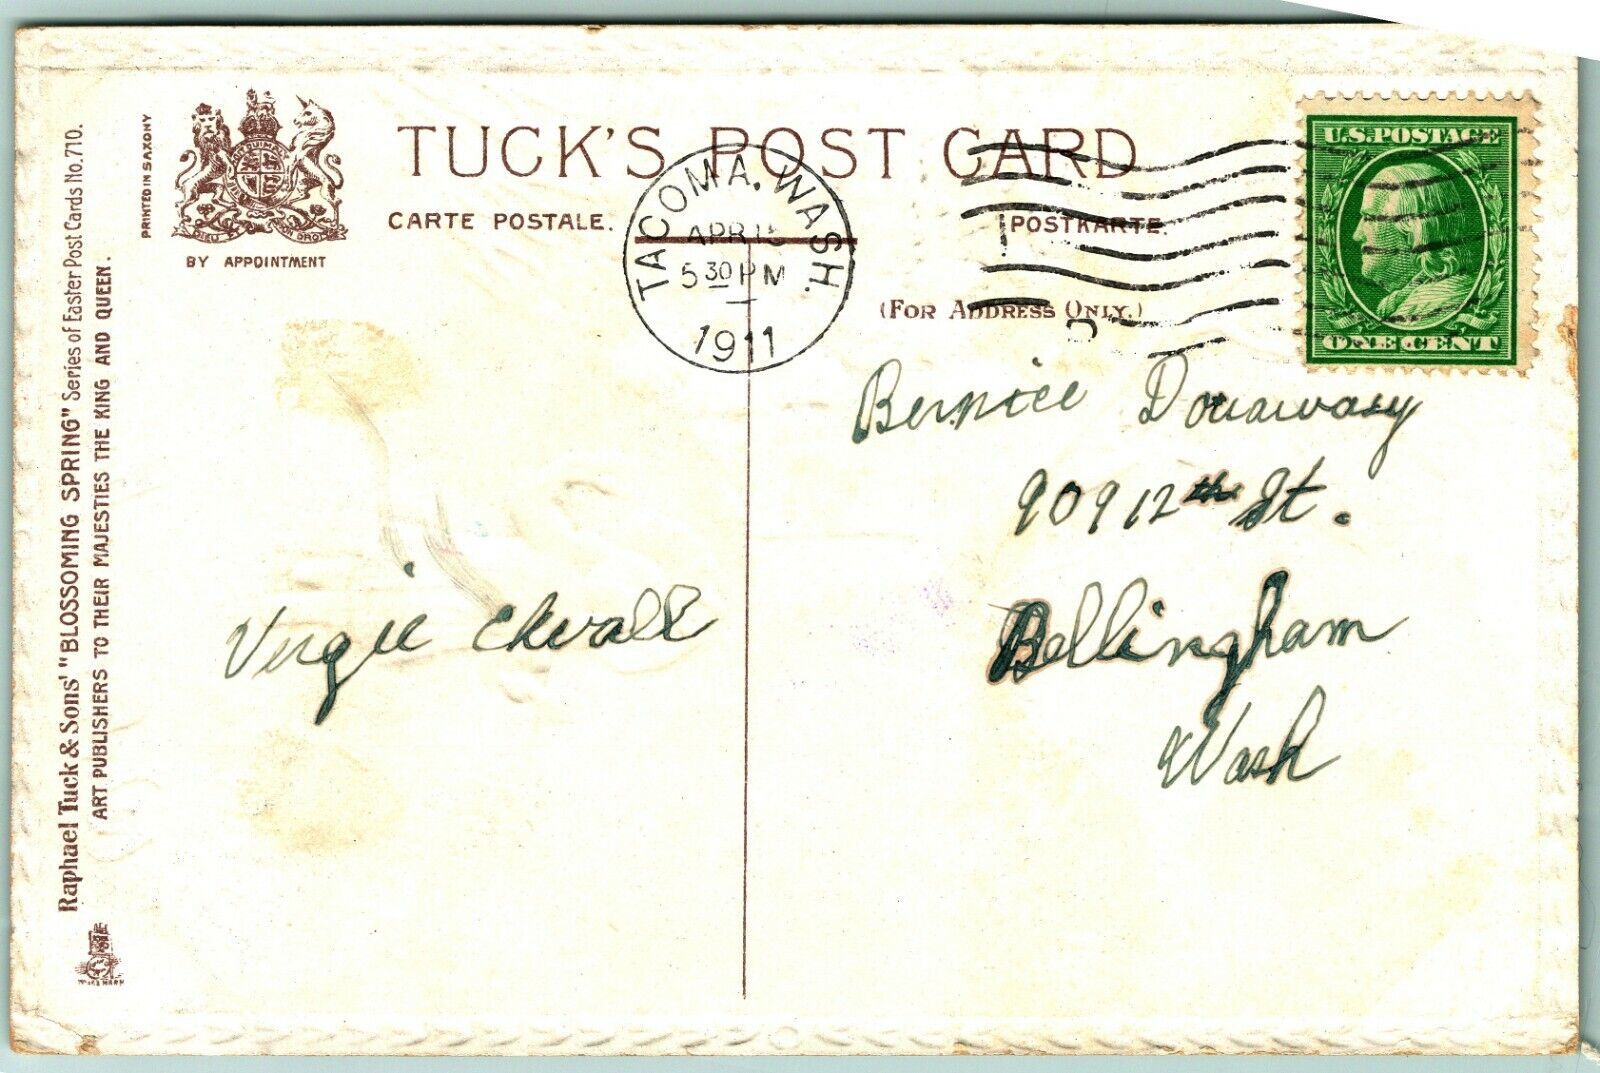 TUCK'S POST CARD
CARTE POSTALE.
POSTKARTE.
(FOR ADDRESS ONLY.)
BY APPOINTMENT
PRINTED IN SAXONY
Raphael Tuck & Sons' "BLOSSOMING SPRING" Series of Easter Post Cards No. 710.
ART PUBLISHERS TO THEIR MAJESTIES THE KING AND QUEEN.
TACOMA, WASH.
APR 15
5 30 PM
1911
U.S. POSTAGE
ONE CENT
Bernice
909 12th St.
Bellingham
Wash
Vergie Ekvall